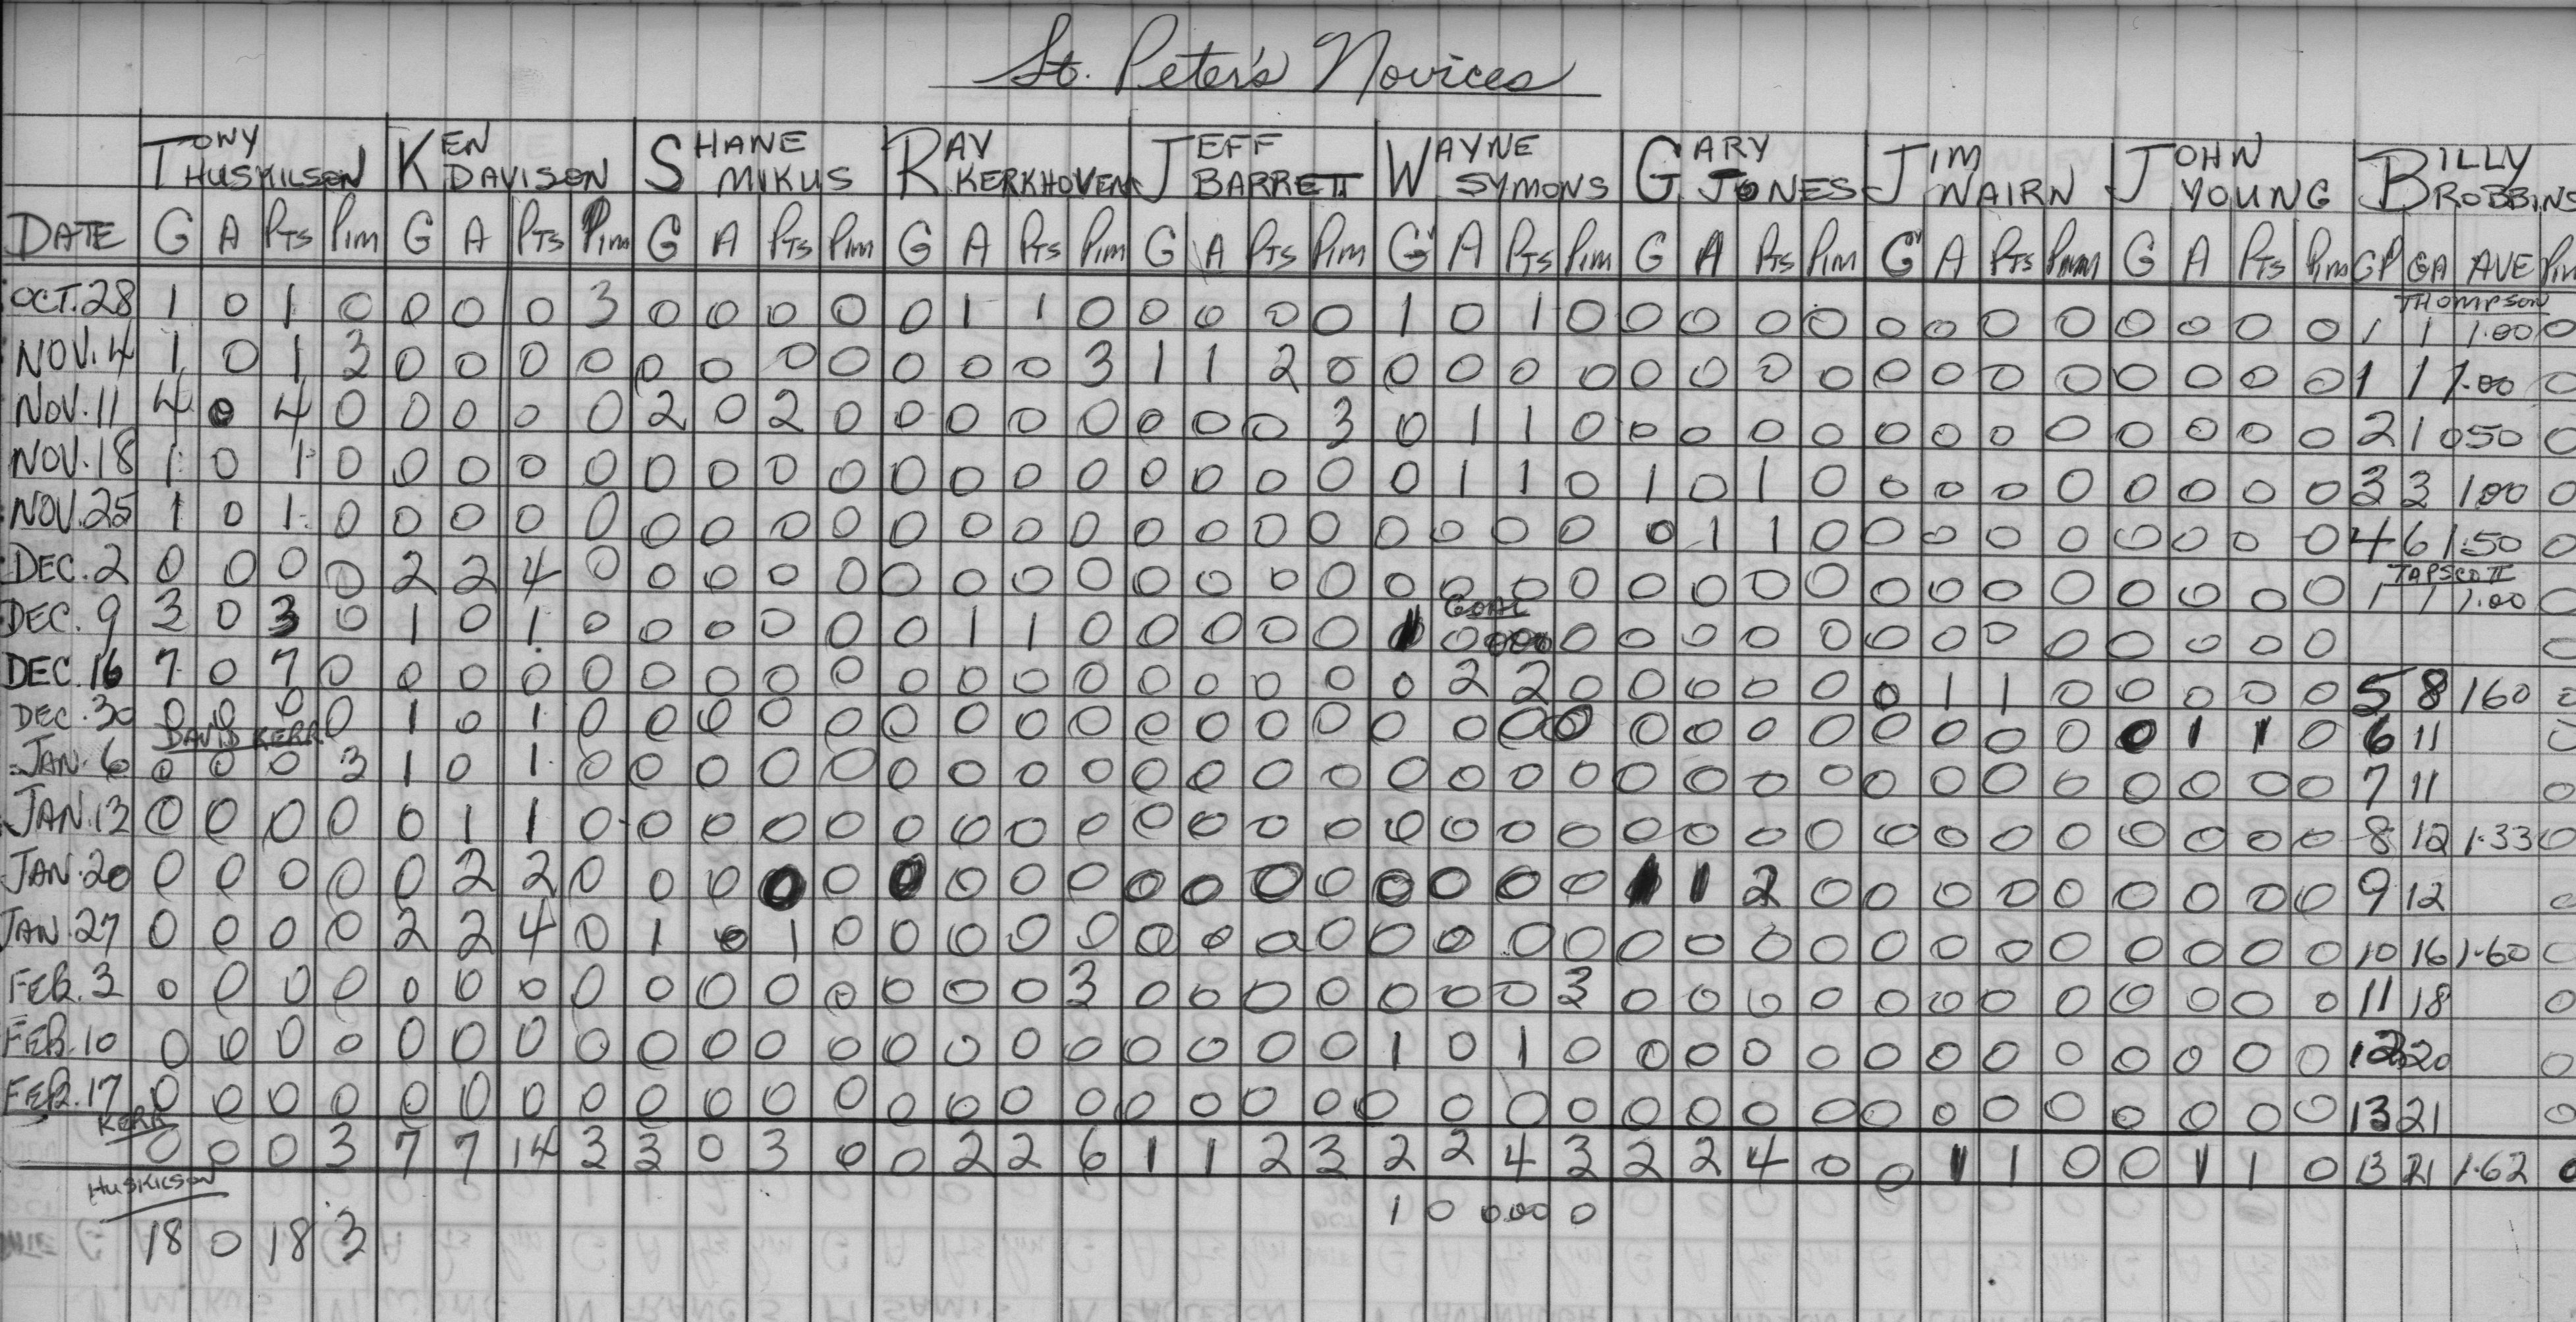 St. Peter's Novices
TONY HUSKILSON KEN DAVISON SHANE MIKUS RAY KERKHOVEN JEFF BARRETT WAYNE SYMONS GARY JONES JIM NAIRN JOHN YOUNG BILLY ROBBINS
DATE G A PTS PIM G A PTS PIM G A PTS PIM G A PTS PIM G A PTS PIM G A PTS PIM G A PTS PIM G A PTS PIM G A PTS PIM GP GA AVE PIM
THOMPSON
OCT. 28 1 0 1 0 0 0 0 3 0 0 0 0 0 1 1 0 0 0 0 0 1 0 1 0 0 0 0 0 0 0 0 0 0 0 0 0 1 1 1.00 0
NOV. 4 1 0 1 3 0 0 0 0 0 0 0 0 0 0 0 3 1 1 2 0 0 0 0 0 0 0 0 0 0 0 0 0 0 0 0 0 1 1 1.00 0
NOV. 11 4 0 4 0 0 0 0 0 2 0 2 0 0 0 0 0 0 0 0 3 0 1 1 0 0 0 0 0 0 0 0 0 0 0 0 0 2 1 050 0
NOV. 18 1 0 1 0 0 0 0 0 0 0 0 0 0 0 0 0 0 0 0 0 0 1 1 0 1 0 1 0 0 0 0 0 0 0 0 0 3 3 1.00 0
NOV. 25 1 0 1 0 0 0 0 0 0 0 0 0 0 0 0 0 0 0 0 0 0 0 0 0 0 1 1 0 0 0 0 0 0 0 0 0 4 6 1.50 0
TAPSCOTT
DEC. 2 0 0 0 0 2 2 4 0 0 0 0 0 0 0 0 0 0 0 0 0 0 0 0 0 0 0 0 0 0 0 0 0 0 0 0 0 1 1 1.00 0
GOAL
DEC. 9 3 0 3 0 1 0 1 0 0 0 0 0 0 1 1 0 0 0 0 0 1 0 000 0 0 0 0 0 0 0 0 0 0 0 0 0 0
DEC. 16 7 0 7 0 0 0 0 0 0 0 0 0 0 0 0 0 0 0 0 0 0 2 2 0 0 0 0 0 0 1 1 0 0 0 0 0 5 8 1.60 0
DEC. 30 0 0 0 0 1 0 1 0 0 0 0 0 0 0 0 0 0 0 0 0 0 0 0 0 0 0 0 0 0 0 0 0 0 1 1 0 6 11 0
DAVID KERR
JAN. 6 0 0 0 3 1 0 1 0 0 0 0 0 0 0 0 0 0 0 0 0 0 0 0 0 0 0 0 0 0 0 0 0 0 0 0 0 7 11 0
JAN. 13 0 0 0 0 0 1 1 0 0 0 0 0 0 0 0 0 0 0 0 0 0 0 0 0 0 0 0 0 0 0 0 0 0 0 0 0 8 12 1.33 0
JAN. 20 0 0 0 0 0 2 2 0 0 0 0 0 0 0 0 0 0 0 0 0 0 0 0 0 1 1 2 0 0 0 0 0 0 0 0 0 9 12 0
JAN. 27 0 0 0 0 2 2 4 0 1 0 1 0 0 0 0 0 0 0 0 0 0 0 0 0 0 0 0 0 0 0 0 0 0 0 0 0 10 16 1.60 0
FEB. 3 0 0 0 0 0 0 0 0 0 0 0 0 0 0 0 3 0 0 0 0 0 0 0 3 0 0 0 0 0 0 0 0 0 0 0 0 11 18 0
FEB. 10 0 0 0 0 0 0 0 0 0 0 0 0 0 0 0 0 0 0 0 0 1 0 1 0 0 0 0 0 0 0 0 0 0 0 0 0 12 20 0
FEB. 17 0 0 0 0 0 0 0 0 0 0 0 0 0 0 0 0 0 0 0 0 0 0 0 0 0 0 0 0 0 0 0 0 0 0 0 0 13 21 0
KERR
0 0 0 3 7 7 14 3 3 0 3 0 0 2 2 6 1 1 2 3 2 2 4 3 2 2 4 0 0 1 1 0 0 1 1 0 13 21 1.62 0
HUSKILSON
1 0 0.00 0
18 0 18 3